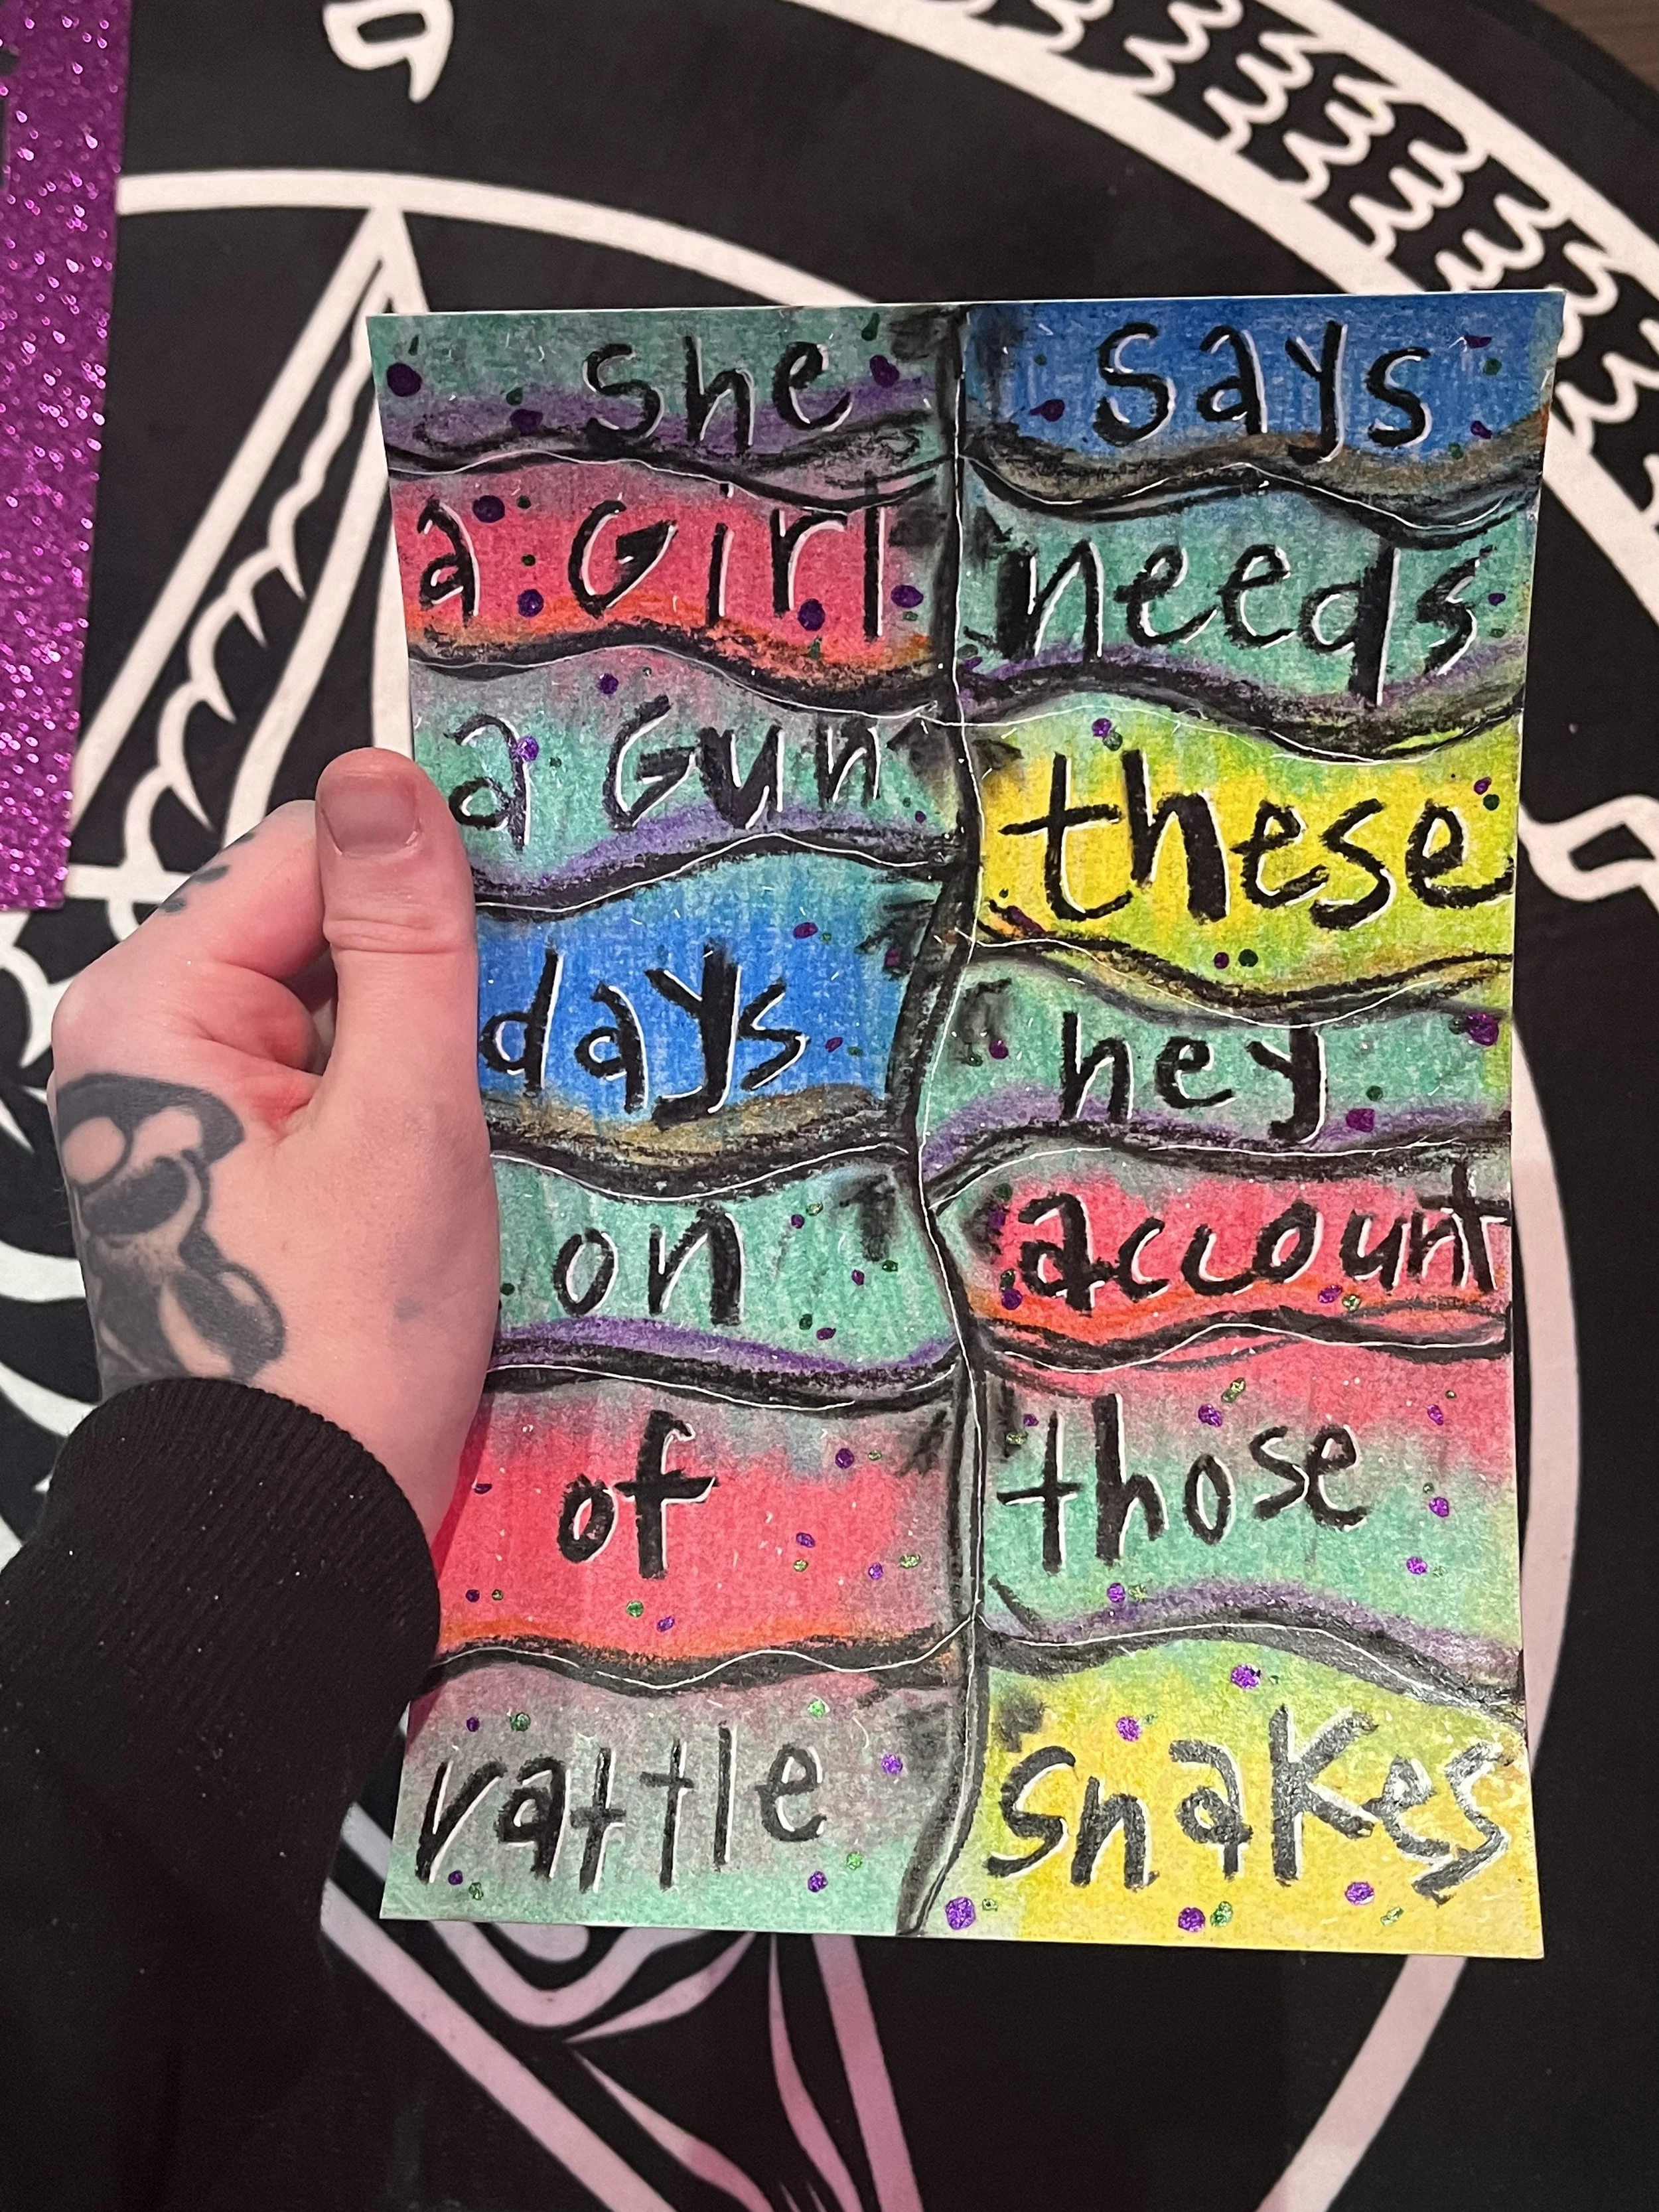 she says
a Girl needs
a Gun these
days hey
on account
of those
rattle snakes